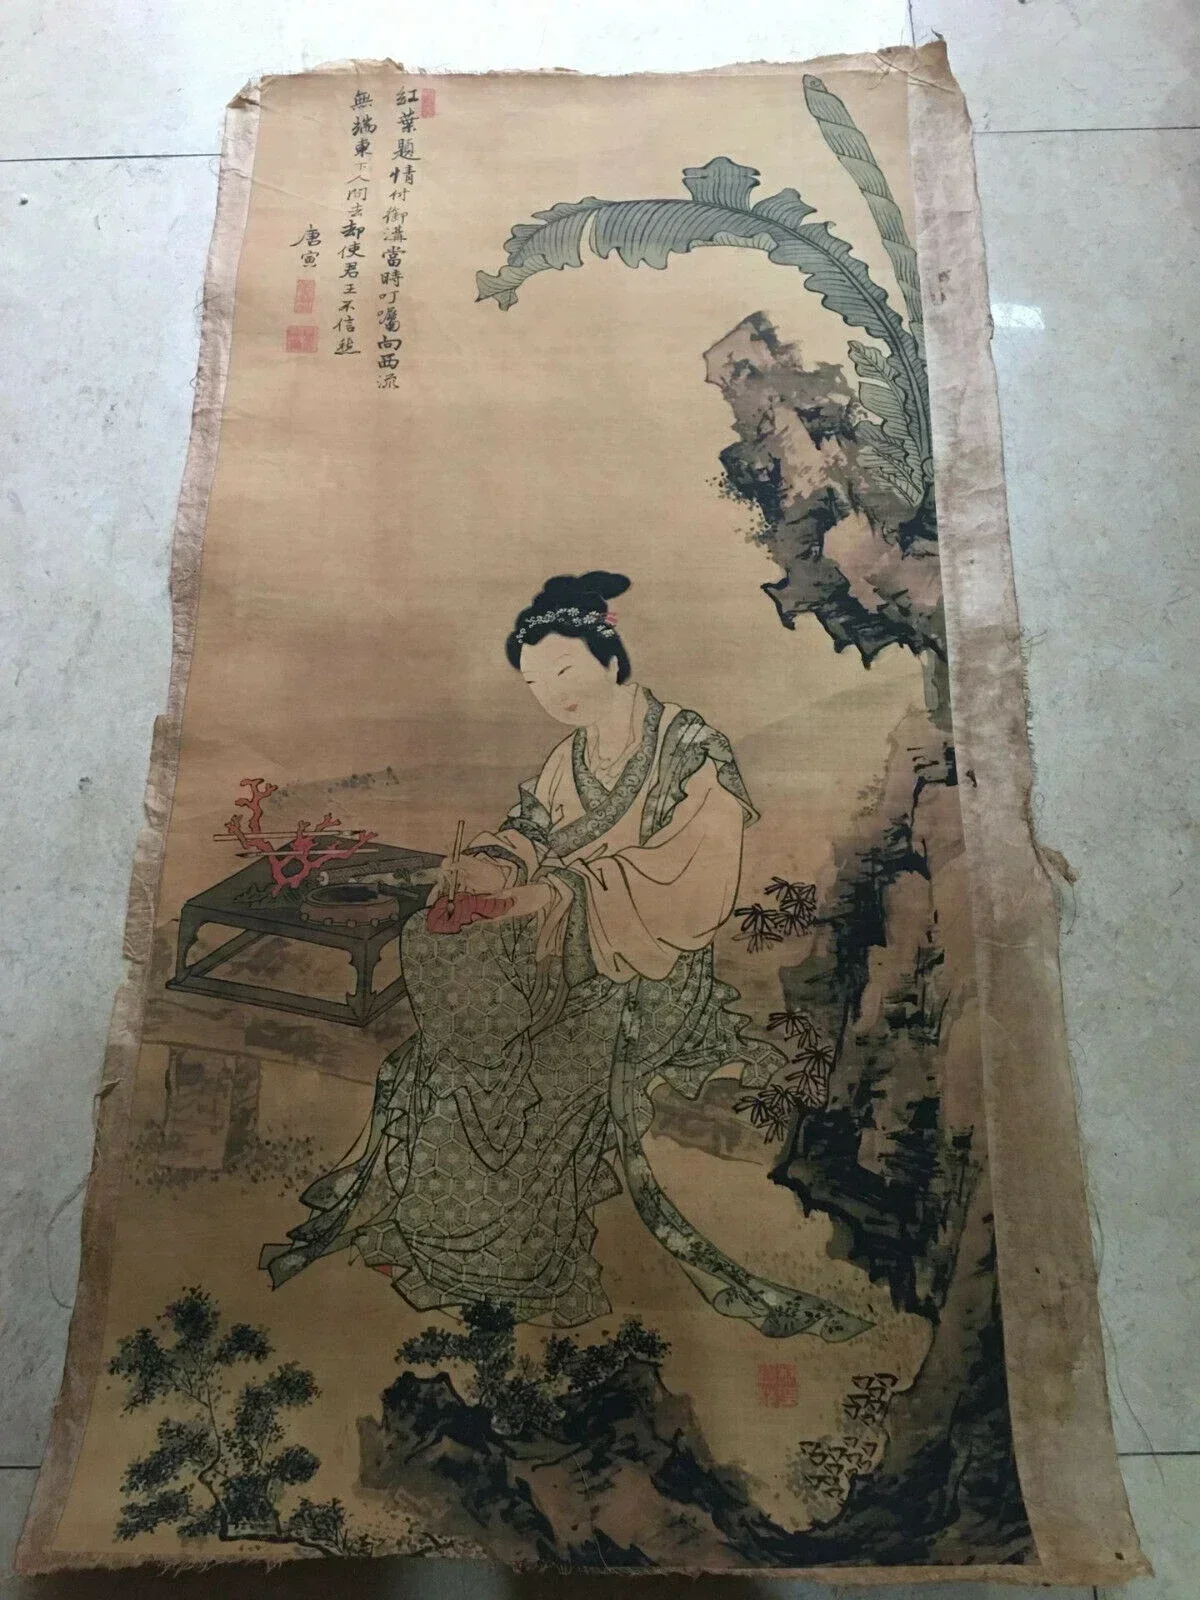 紅葉題情付御溝當時叮囑向西流
無端東下人間去却使君王不信愁
唐寅